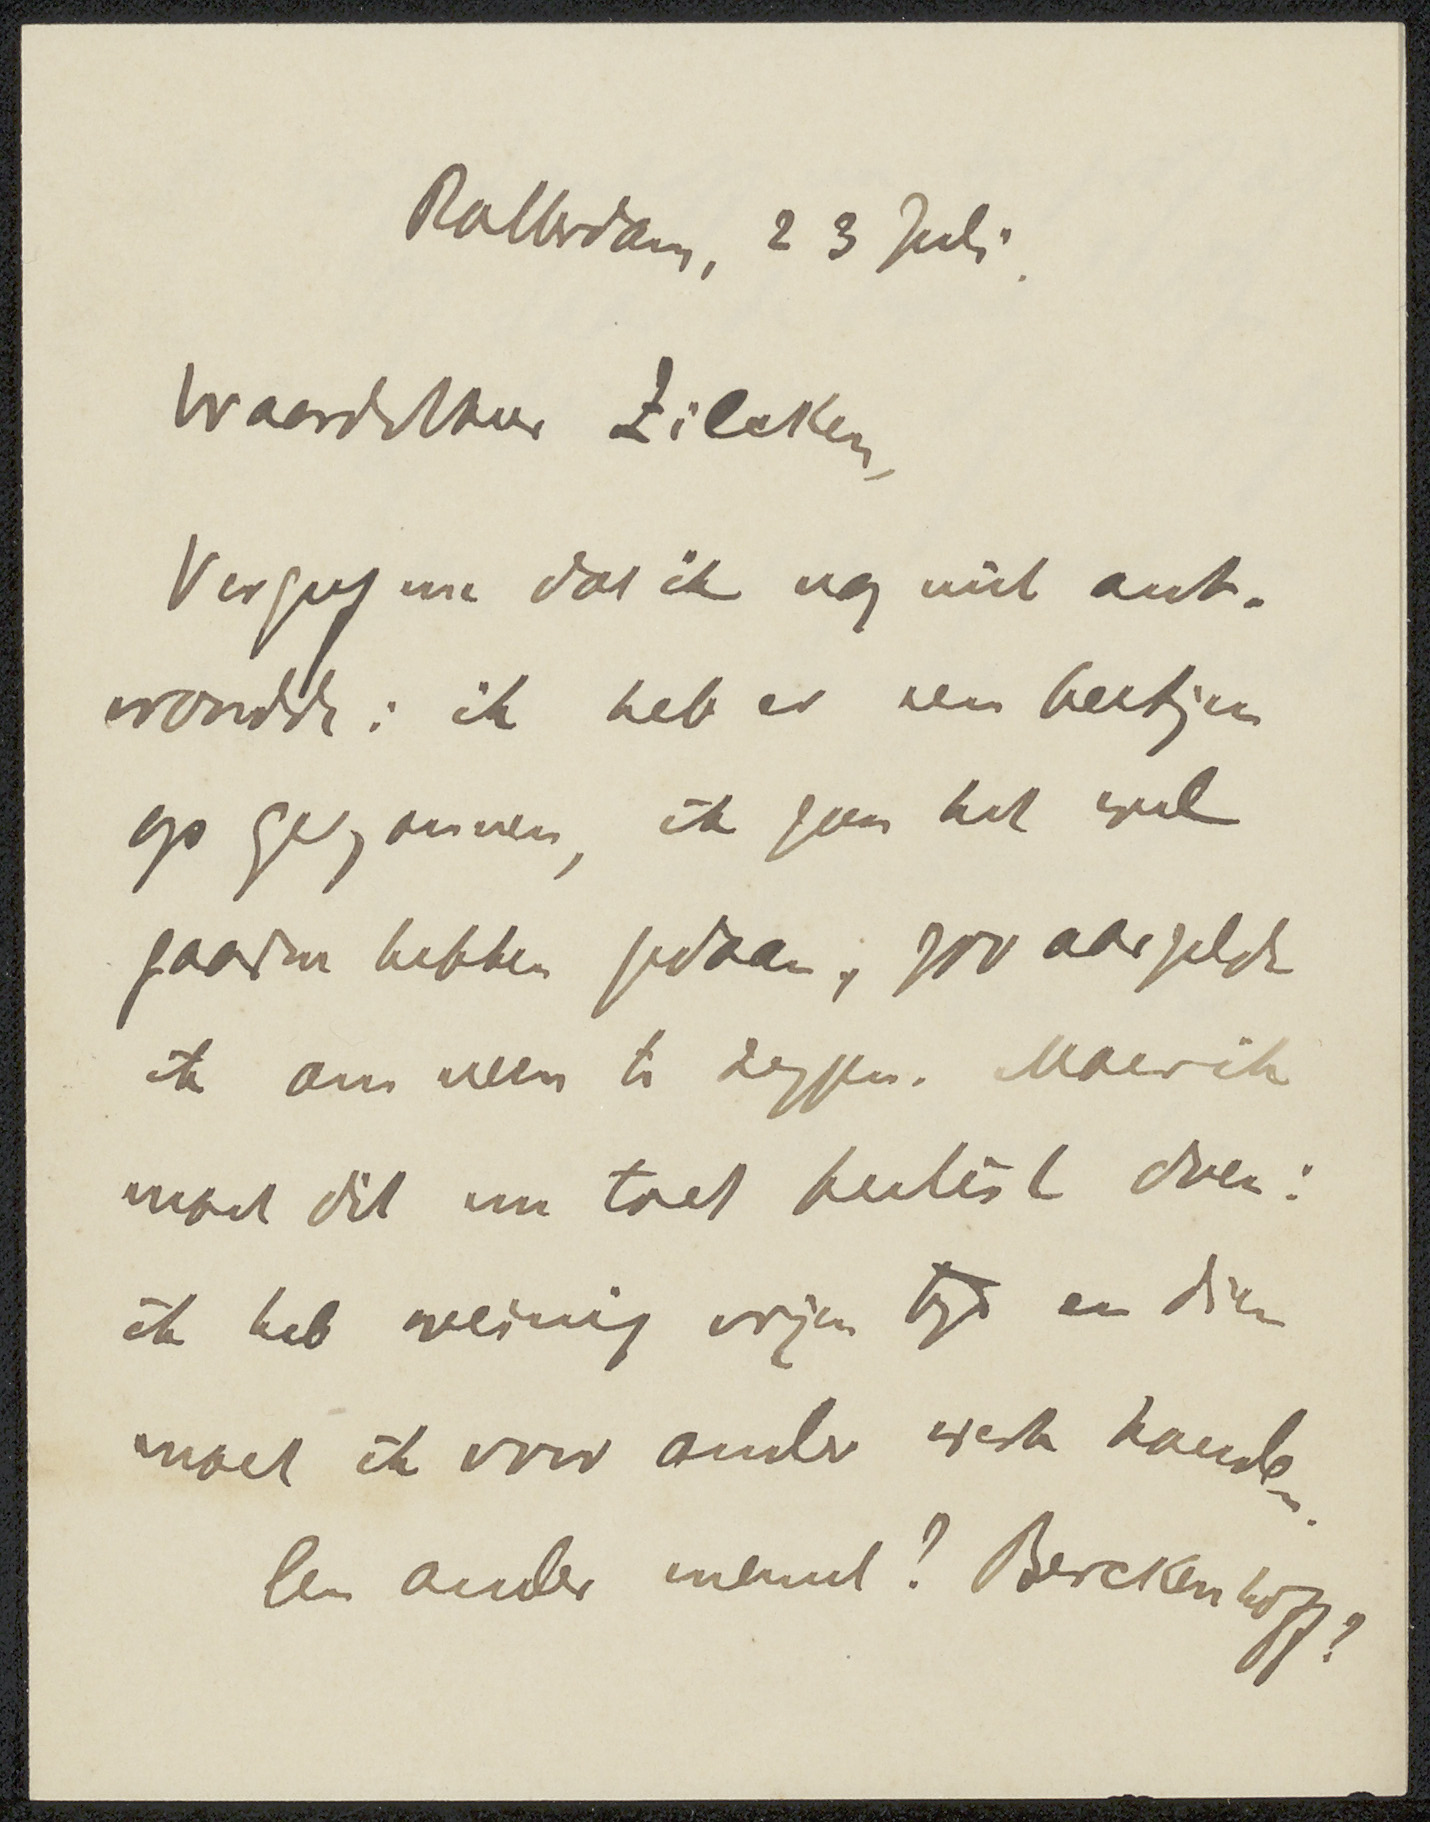 Rotterdam, 23 Juli.
Waarde Heer Zilcken,
Vergeef me dat ik nog niet ant-
woordde: ik heb er een beetjen
op gezonnen, ik zou het wel
gaarne hebben gedaan, zoo aarzelde
ik om neen te zeggen. Maar ik
moet dit nu toch beslist doen:
ik heb weinig vrijen tijd en dien
moet ik voor ander werk houden.
Een ander memmt? Berckenhoff?